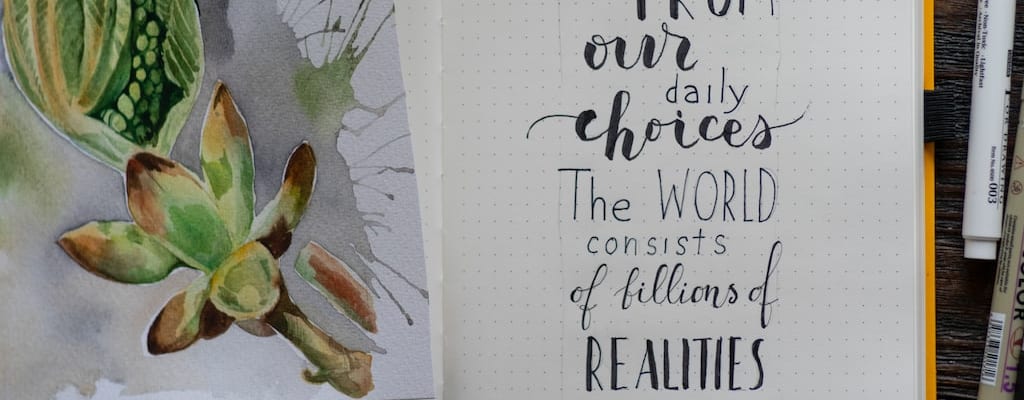 FROM
our
daily
choices
The WORLD
consists
of billions of
REALITIES
003